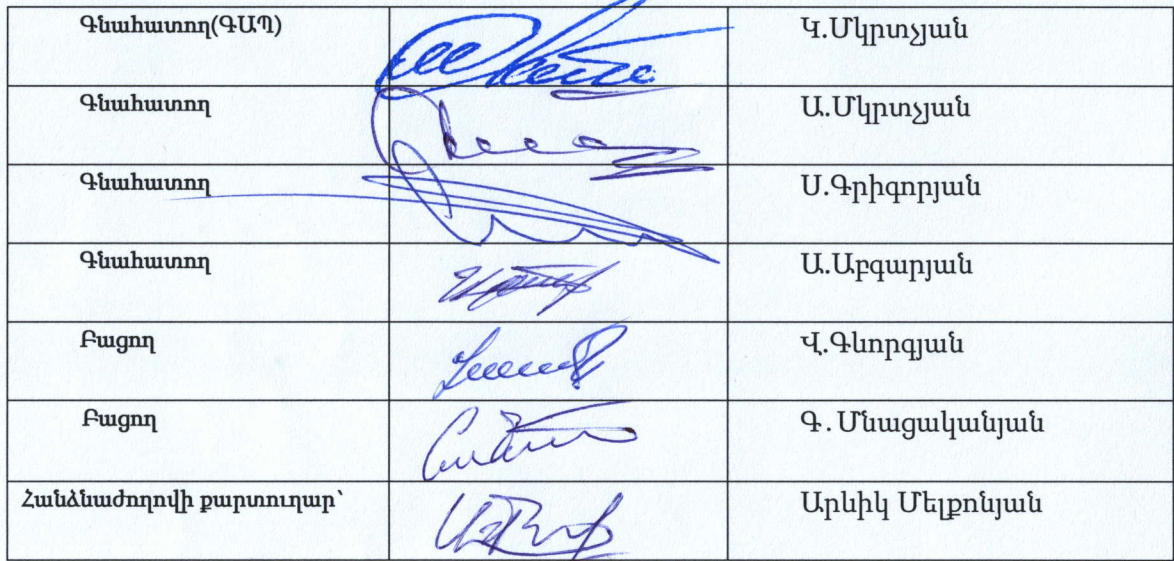 Գնահատող(ԳԱՊ) Կ.Մկրտչյան
Գնահատող Ա.Մկրտչյան
Գնահատող Ս.Գրիգորյան
Գնահատող Ա.Աբգարյան
Բացող Վ.Գևորգյան
Բացող Գ. Մնացականյան
Հանձնաժողովի քարտուղար՝ Արևիկ Մելքոնյան